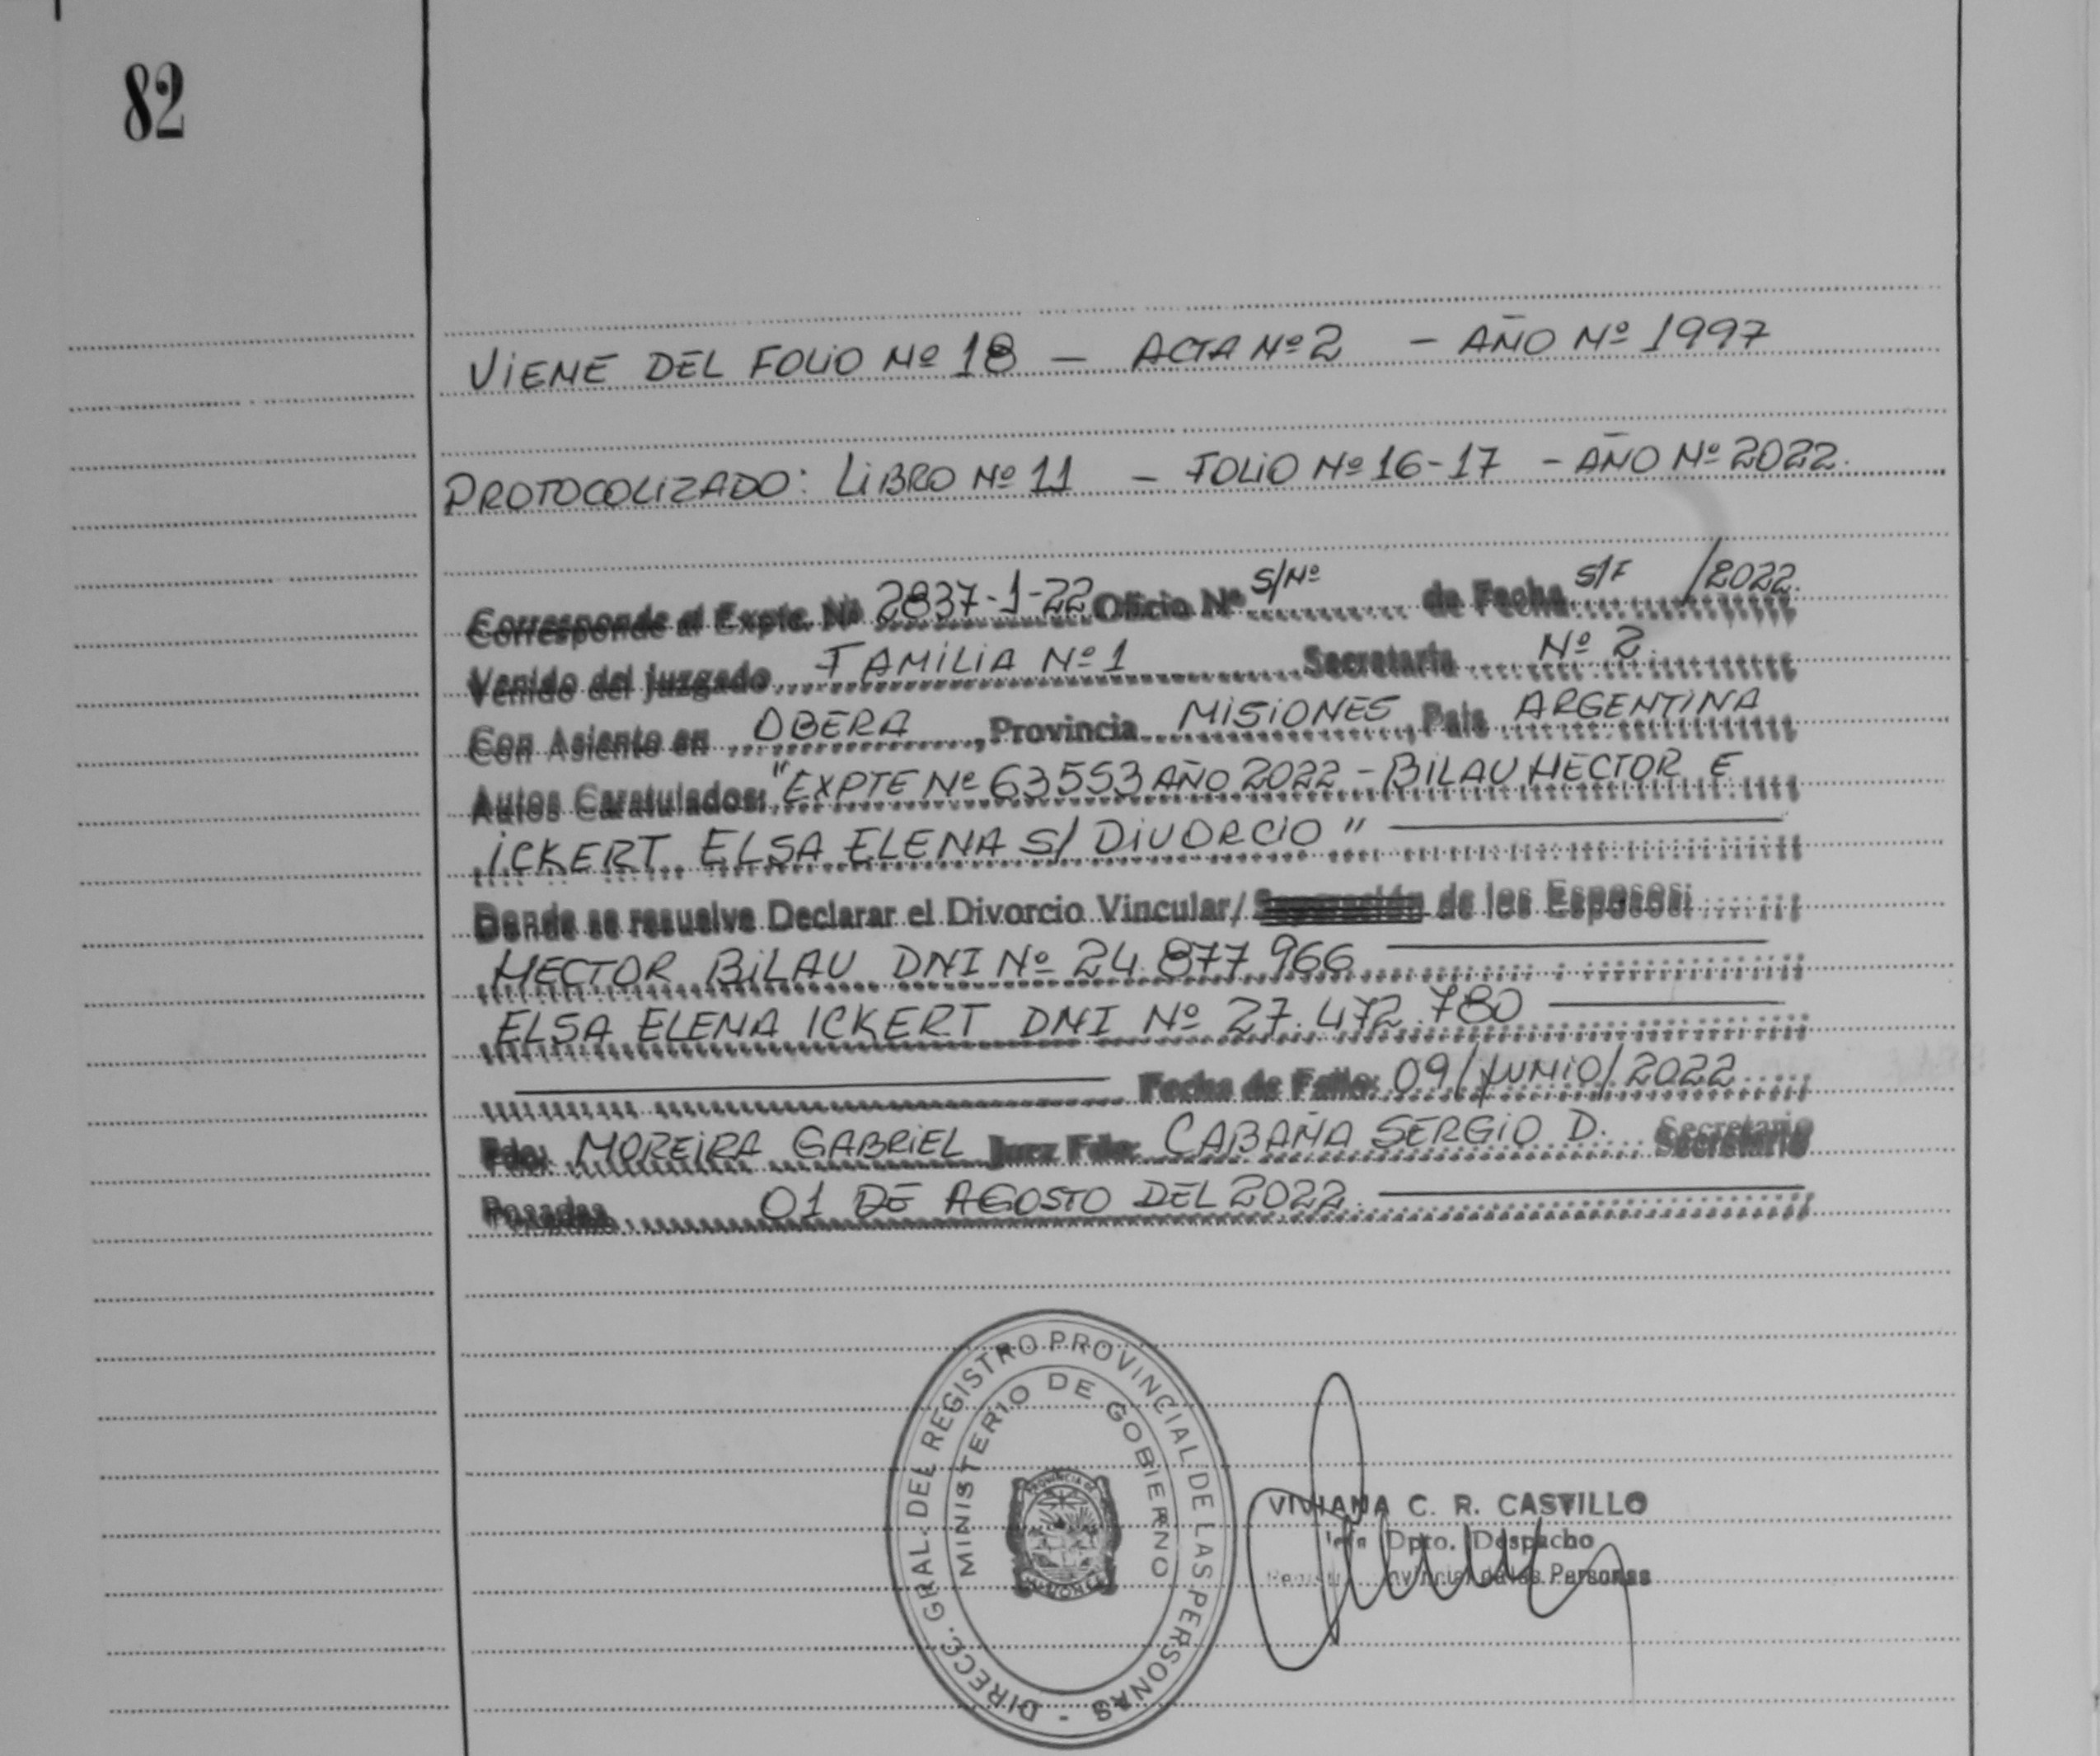 82
VIENE DEL FOLIO Nº 18 - ACTA Nº 2 - AÑO Nº 1997
PROTOCOLIZADO: LIBRO Nº 11 - FOLIO Nº 16-17 - AÑO Nº 2022.
Corresponde al Expte. Nº 2837-1-22 Oficio Nº S/Nº de Fecha S/F /2022.
Venido del juzgado FAMILIA Nº 1 Secretaría Nº 2.
Con Asiento en OBERA, Provincia MISIONES, País ARGENTINA
Autos Caratulados: "EXPTE Nº 63553 AÑO 2022 - BILAU HECTOR E
ICKERT ELSA ELENA S/ DIVORCIO"
Donde se resuelve Declarar el Divorcio Vincular/ Separación de los Esposos:
HECTOR BILAU DNI Nº 24.877.966
ELSA ELENA ICKERT DNI Nº 27.472.780
Fecha de Fallo: 09/JUNIO/2022
Fdo: MOREIRA GABRIEL Juez Fdo: CABAÑA SERGIO D. Secretario
Posadas 01 DE AGOSTO DEL 2022.
DIRECC. GRAL. DEL REGISTRO PROVINCIAL DE LAS PERSONAS -
MINISTERIO DE GOBIERNO
PROVINCIA DE
VIVIANA C. R. CASTILLO
Dpto. Despacho
de las Personas